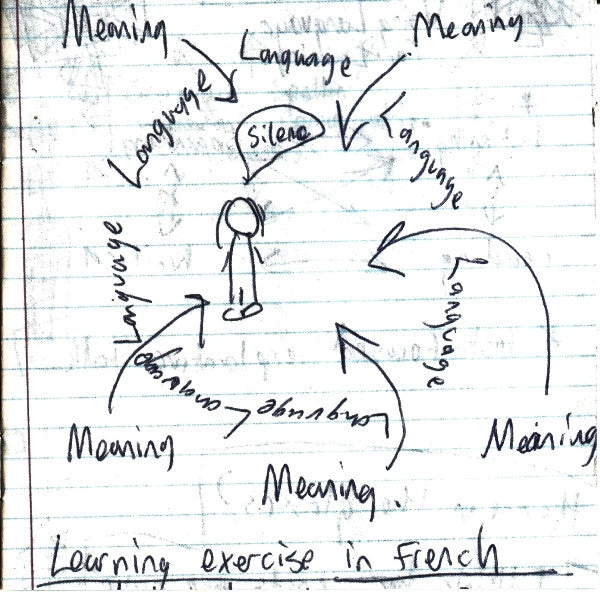 Meaning
Language
Meaning
Language
Silence
Language
Language
Language
Language
Language
Meaning
Meaning.
Meaning
Learning exercise in French